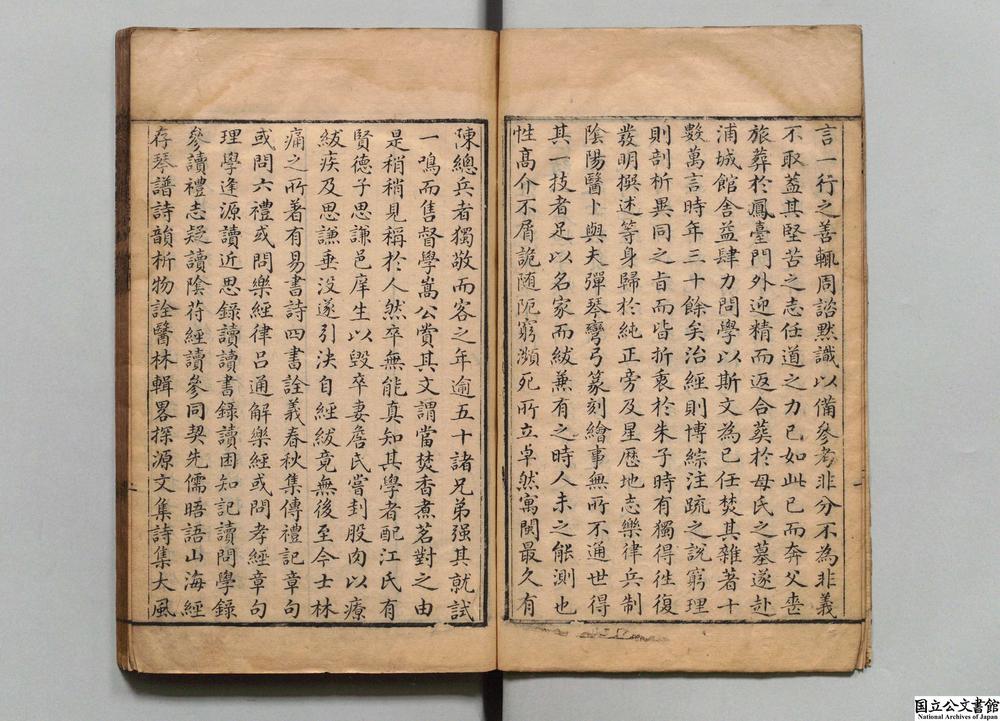 言一行之善輒周諮默識以備參考非分不為非義
不取葢其堅苦之志任道之力已如此已而奔父喪
旅葬於鳳臺門外迎精而返合葬於母氏之墓遂赴
浦城館舍益肆力問學以斯文為已任焚其雜著十
數萬言時年三十餘矣治經則博綜注疏之說窮理
則剖析異同之旨而皆折衷於朱子時有獨得徃復
發明撰述等身歸於純正旁及星歷地志樂律兵制
陰陽醫卜與夫彈琴彎弓篆刻繪事無所不通世得
其一技者足以名家而紱兼有之時人未之能測也
性高介不屑詭随阨窮瀕死所立卓然寓閩最久有
陳總兵者獨敬而客之年逾五十諸兄弟强其就試
一鳴而售督學嵩公賞其文謂當焚香煮茗對之由
是稍稍見稱於人然卒無能真知其學者配江氏有
賢德子思謙邑庠生以毀卒妻詹氏嘗刲股肉以療
紱疾及思謙垂没遂引決自經紱竟無後至今士林
痛之所著有易書詩四書詮義春秋集傳禮記章句
或問六禮或問樂經律呂通解樂經或問孝經章句
理學逢源讀近思錄讀讀書錄讀困知記讀問學錄
參讀禮志疑讀陰符經讀參同契先儒晤語山海經
存琴譜詩韻析物詮醫林輯畧探源文集詩集大風
国立公文書館
National Archives of Japan